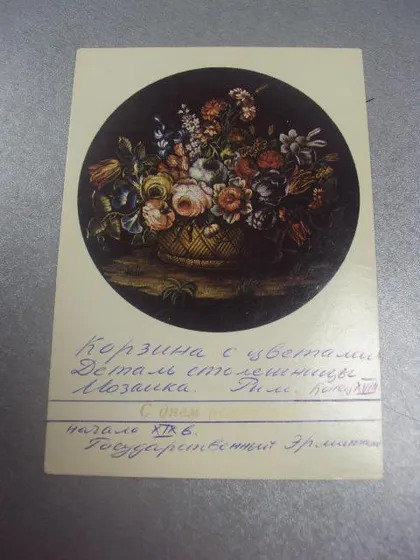 Корзина с цветами
Деталь столешницы
Мозаика. Рим. Конец XVIII
С днем
начало XIX в.
Государственный Эрмитаж